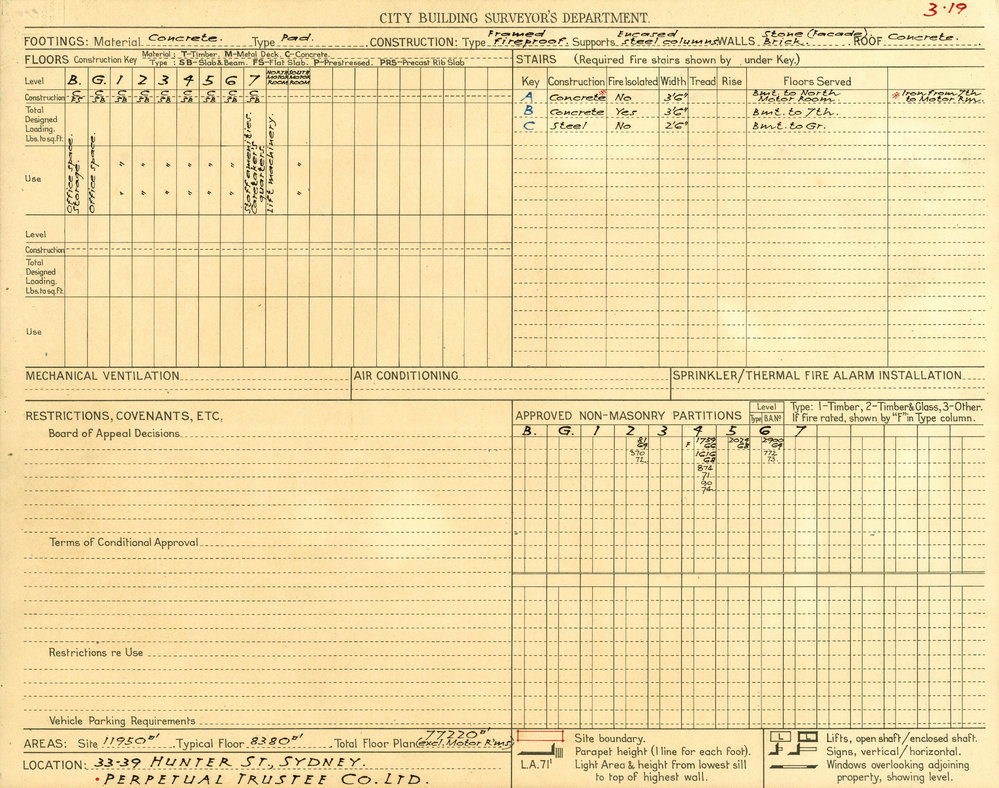 3·19
CITY BUILDING SURVEYOR'S DEPARTMENT.
FOOTINGS: Material Concrete. Type Pad. CONSTRUCTION: Type Framed Fireproof. Supports Encased steel columns WALLS Stone (Facade). Brick. ROOF Concrete.
FLOORS Construction Key Material: T-Timber. M-Metal Deck. C-Concrete.
Type: SB-Slab & Beam. FS-Flat Slab. P-Prestressed. PRS-Precast Rib Slab
Level B. G. 1 2 3 4 5 6 7 NORTH MOTOR ROOM SOUTH MOTOR ROOM
Construction C FS C SB C SB C SB C SB C SB C SB C SB C SB
Total Designed Loading. Lbs. to sq. ft.
Use Office space. Storage. Office space. " " " " " " Staff amenities. Caretaker's quarters. Lift machinery. "
Level
Construction
Total Designed Loading. Lbs. to sq. ft.
Use
STAIRS (Required fire stairs shown by under Key.)
Key Construction Fire Isolated Width Tread Rise Floors Served
A Concrete* No 3'6" Bmt. to North Motor Room. * Iron from 7th to Motor Rm.
B Concrete Yes 3'6" Bmt. to 7th.
C Steel No 2'6" Bmt. to Gr.
MECHANICAL VENTILATION
AIR CONDITIONING
SPRINKLER/THERMAL FIRE ALARM INSTALLATION
RESTRICTIONS, COVENANTS, ETC,
Board of Appeal Decisions
Terms of Conditional Approval
Restrictions re Use
Vehicle Parking Requirements
APPROVED NON-MASONRY PARTITIONS
Level
Type B.A.Nº
Type: 1-Timber, 2-Timber & Glass, 3-Other.
If fire rated, shown by "F" in Type column.
B. G. 1 2 3 4 5 6 7
81 69 F 1759 2024 68 2900 69
370 72. 1616 68 772 73.
874 71.
90 74.
AREAS: Site 11950□' Typical Floor 8380□' Total Floor Plan 77220□' (excl. Motor R'ms)
LOCATION: 33-39 HUNTER ST., SYDNEY.
• PERPETUAL TRUSTEE CO. LTD.
Site boundary.
Parapet height (1 line for each foot).
L.A. 71' Light Area & height from lowest sill
to top of highest wall.
L L Lifts, open shaft/enclosed shaft.
Signs, vertical/horizontal.
Windows overlooking adjoining
property, showing level.